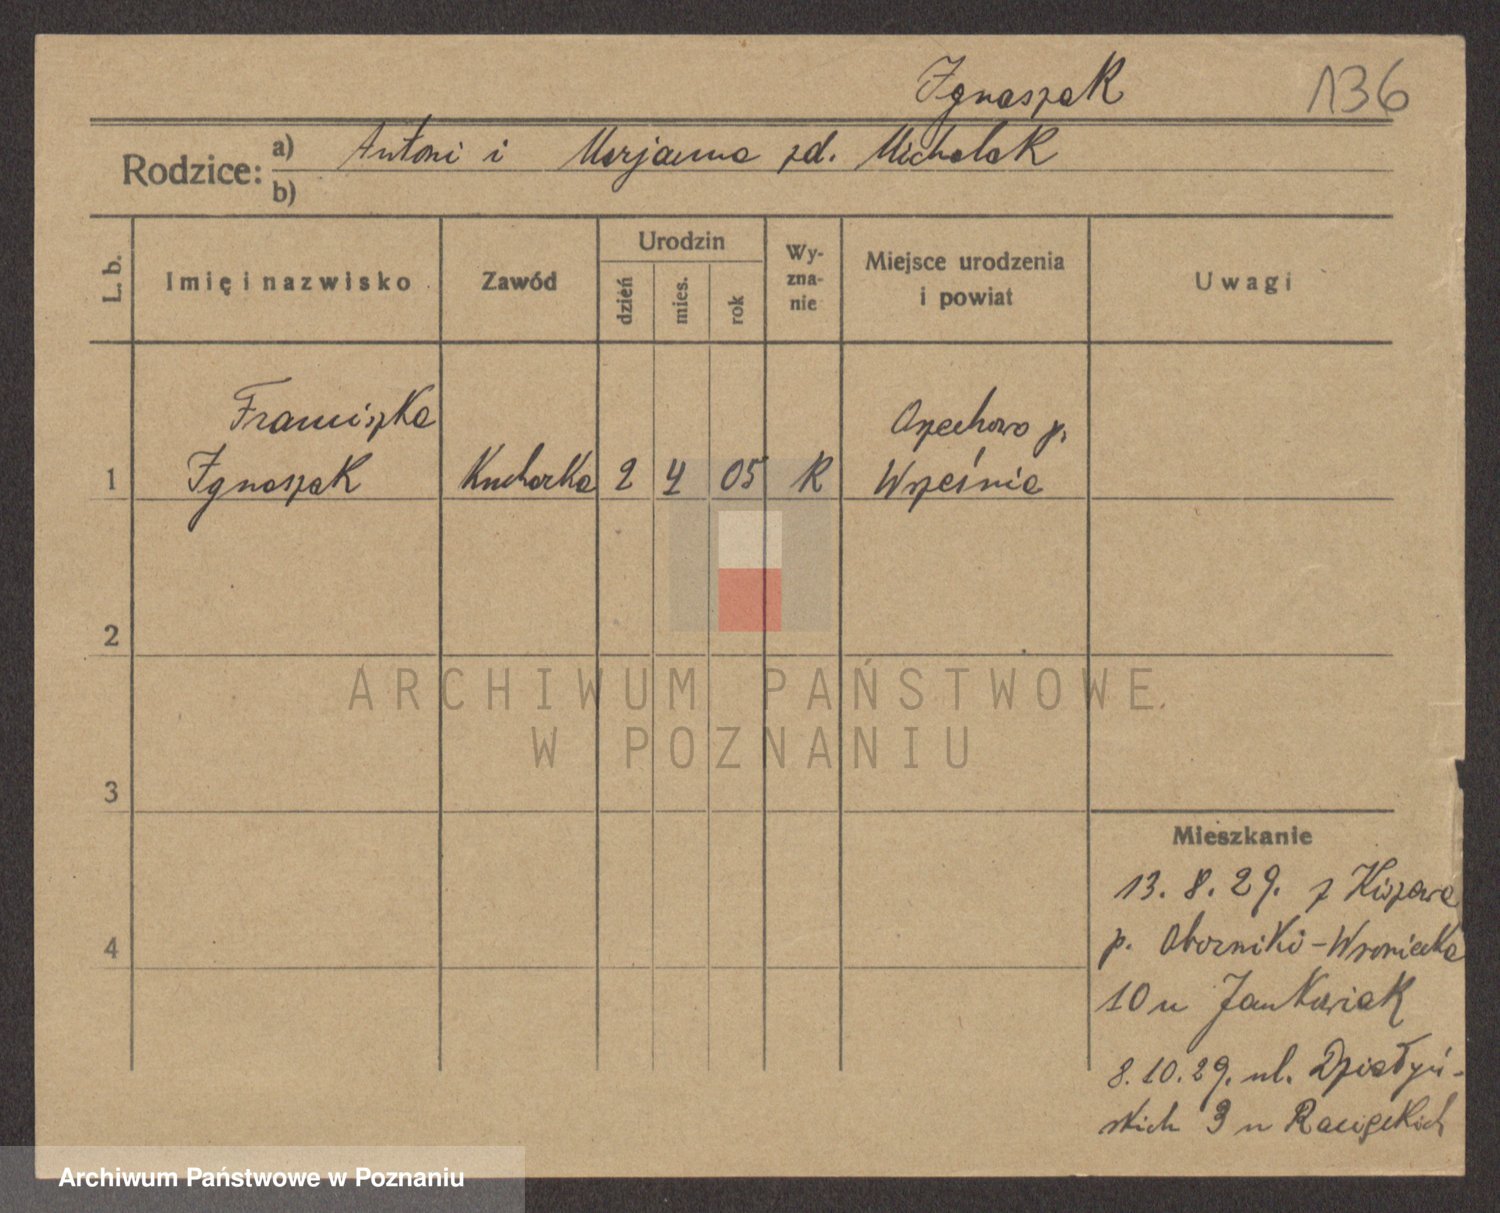 Ignaszak 136
Rodzice: a) Antoni i Marjanna zd. Michalak
b)
L. b. Imię i nazwisko Zawód Urodzin dzień mies. rok Wy-zna-nie Miejsce urodzenia i powiat Uwagi
Franciszka Orzechowo p.
1 Ignaszak Kucharka 2 4 05 R Września
2
ARCHIWUM PAŃSTWOWE
W POZNANIU
3
Mieszkanie
13. 8. 29. z Kiszewa
4 p. Oborniki - Wroniecka
10 u Jankowiak
8. 10. 29. ul. Działyń-
skich 3 u
Archiwum Państwowe w Poznaniu